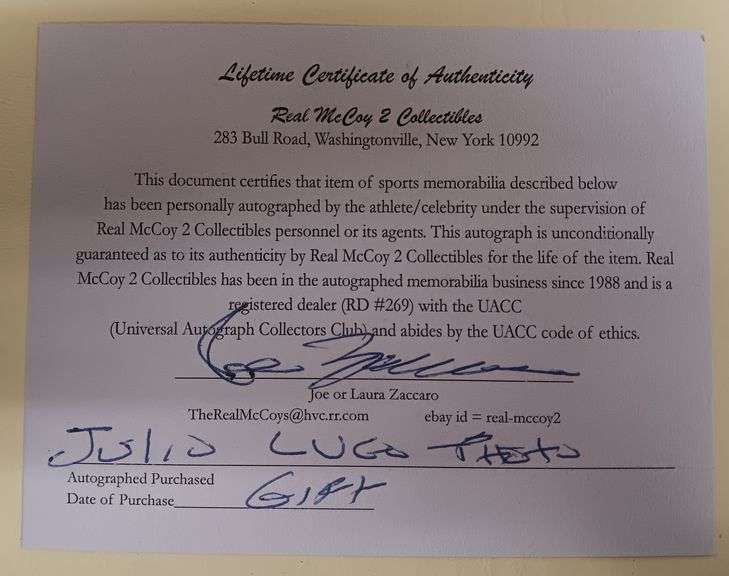 Lifetime Certificate of Authenticity
Real McCoy 2 Collectibles
283 Bull Road, Washingtonville, New York 10992
This document certifies that item of sports memorabilia described below
has been personally autographed by the athlete/celebrity under the supervision of
Real McCoy 2 Collectibles personnel or its agents. This autograph is unconditionally
guaranteed as to its authenticity by Real McCoy 2 Collectibles for the life of the item. Real
McCoy 2 Collectibles has been in the autographed memorabilia business since 1988 and is a
registered dealer (RD #269) with the UACC
(Universal Autograph Collectors Club) and abides by the UACC code of ethics.
Joe or Laura Zaccaro
TheRealMcCoys@hvc.rr.com ebay id = real-mccoy2
Julio Lugo Photo
Autographed Purchased
Date of Purchase Gift